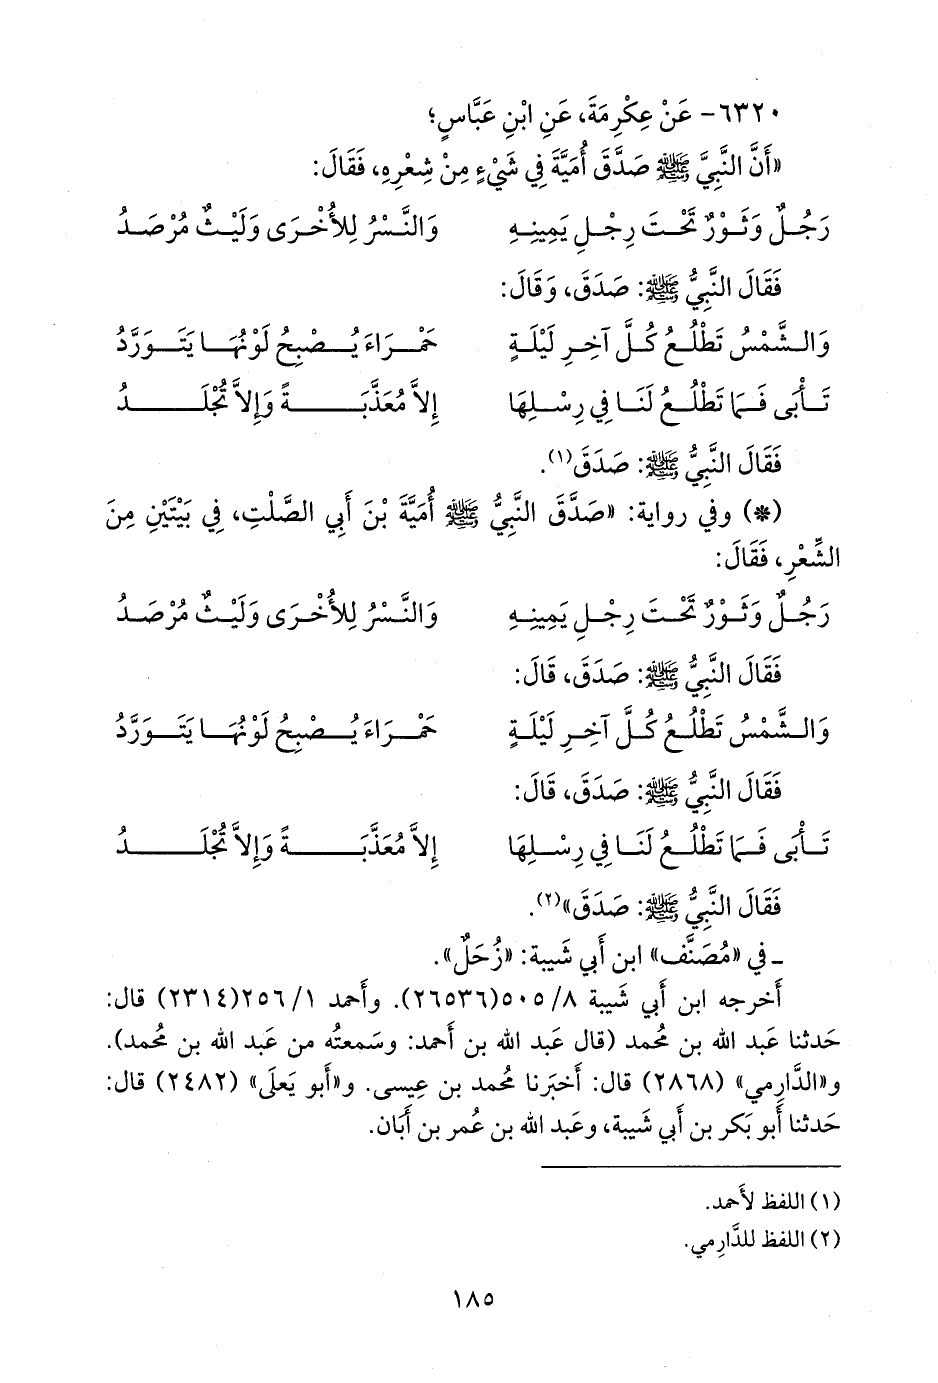 ٦٣٢٠- عَنْ عِكْرِمَةَ، عَنِ ابْنِ عَبَّاسٍ؛
«أَنَّ النَّبِيَّ ﷺ صَدَّقَ أُمَيَّةَ فِي شَيْءٍ مِنْ شِعْرِهِ، فَقَالَ:
رَجُلٌ وَثَوْرٌ تَحْتَ رِجْلِ يَمِينِهِ وَالنَّسْرُ لِلأُخْرَى وَلَيْثٌ مُرْصَدُ
فَقَالَ النَّبِيُّ ﷺ: صَدَقَ، وَقَالَ:
وَالشَّمْسُ تَطْلُعُ كُلَّ آخِرِ لَيْلَةٍ حَمْرَاءَ يُصْبِحُ لَوْنُهَا يَتَوَرَّدُ
تَأْبَى فَمَا تَطْلُعُ لَنَا فِي رِسْلِهَا إِلاَّ مُعَذَّبَةً وَإِلاَّ تُجْلَدُ
فَقَالَ النَّبِيُّ ﷺ: صَدَقَ(١).
(*) وفي رواية: «صَدَّقَ النَّبِيُّ ﷺ أُمَيَّةَ بْنَ أَبِي الصَّلْتِ، فِي بَيْتَيْنِ مِنَ
الشِّعْرِ، فَقَالَ:
رَجُلٌ وَثَوْرٌ تَحْتَ رِجْلِ يَمِينِهِ وَالنَّسْرُ لِلأُخْرَى وَلَيْثٌ مُرْصَدُ
فَقَالَ النَّبِيُّ ﷺ: صَدَقَ، قَالَ:
وَالشَّمْسُ تَطْلُعُ كُلَّ آخِرِ لَيْلَةٍ حَمْرَاءَ يُصْبِحُ لَوْنُهَا يَتَوَرَّدُ
فَقَالَ النَّبِيُّ ﷺ: صَدَقَ، قَالَ:
تَأْبَى فَمَا تَطْلُعُ لَنَا فِي رِسْلِهَا إِلاَّ مُعَذَّبَةً وَإِلاَّ تُجْلَدُ
فَقَالَ النَّبِيُّ ﷺ: صَدَقَ»(٢).
ـ في «مُصَنَّف» ابن أَبي شَيبة: «زُحَلٌ».
أَخرجه ابن أَبي شَيبة ٨/ ٥٠٥(٢٦٥٣٦). وأَحمد ١/ ٢٥٦(٢٣١٤) قال:
حَدثنا عَبد الله بن محُمد (قال عَبد الله بن أَحمد: وسَمعتُه من عَبد الله بن محُمد).
و«الدَّارِمي» (٢٨٦٨) قال: أَخبَرنا محُمد بن عِيسى. و«أَبو يَعلَى» (٢٤٨٢) قال:
حَدثنا أَبو بَكر بن أَبي شَيبة، وعَبد الله بن عُمر بن أَبَان.
(١) اللفظ لأَحمد.
(٢) اللفظ للدَّارِمي.
١٨٥